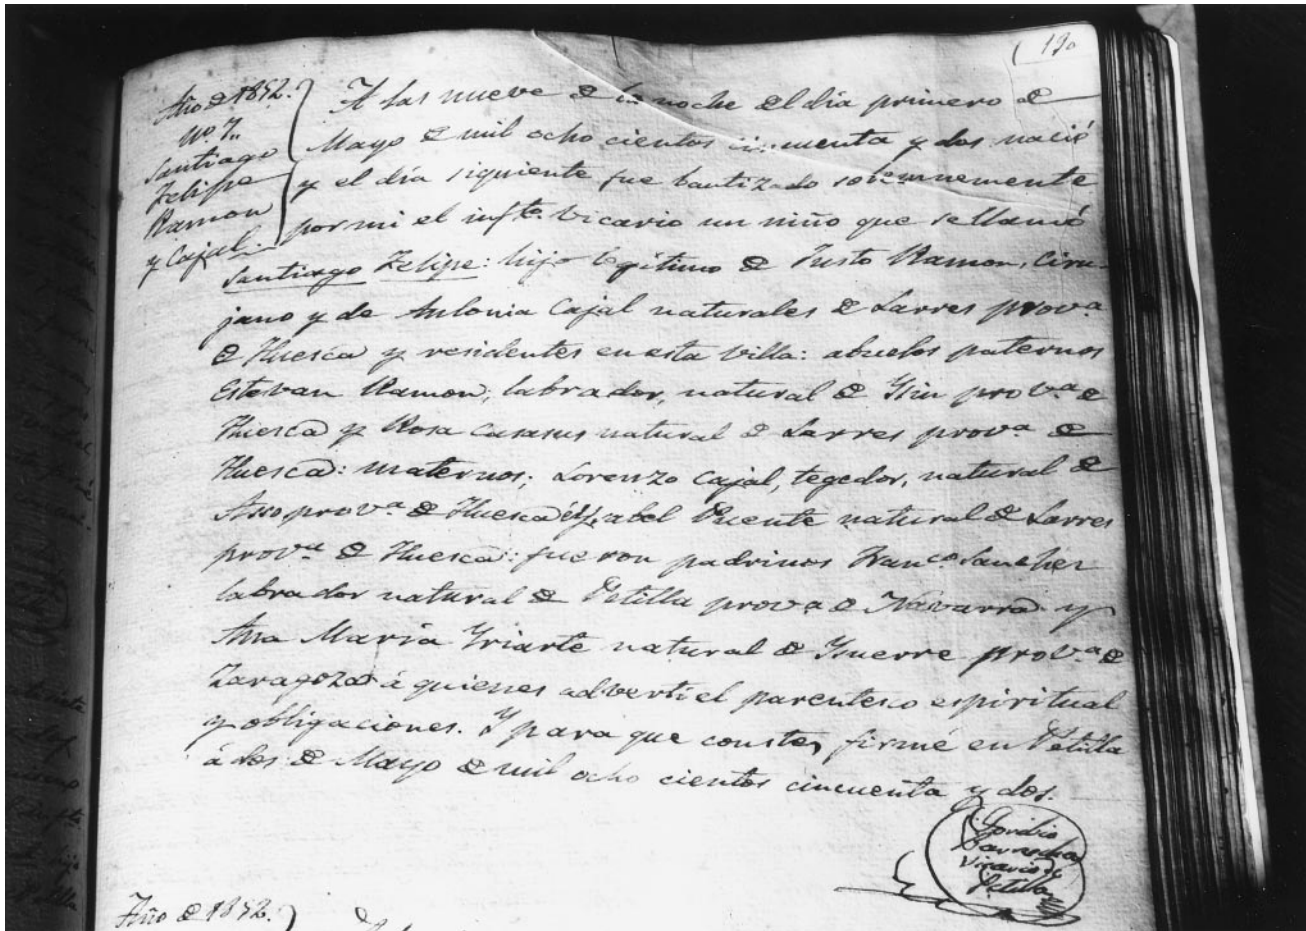 190
Año de 1852.
nº 7.
Santiago
Felipe
Ramon
y Cajal.
A las nueve de la noche del día primero de
Mayo de mil ocho cientos cincuenta y dos nació
y el día siguiente fue bautizado solemnemente
por mi el infto. Vicario un niño que se llamó
Santiago Felipe: hijo legitimo de Justo Ramon, ciru-
jano y de Antonia Cajal naturales de Larres prov.a
de Huesca y residentes en esta Villa: abuelos paternos
Estevan Ramon, labrador, natural de Ysin prov.a de
Huesca y Rosa Casasus natural de Larres prov.a de
Huesca: maternos; Lorenzo Cajal, tegedor, natural de
Asso prov.a de Huesca é Ysabel Puente natural de Larres
prov.a de Huesca: fueron padrinos Franco. Sanchez
labrador natural de Petilla prov.a de Navarra y
Ana María Yriarte natural de Ysuerre prov.a de
Zaragoza á quienes advertí el parentesco espiritual
y obligaciones. Y para que conste, firmé en Petilla
á dos de Mayo de mil ocho cientos cincuenta y dos.
Vicario de
Petilla
Año de 1852.